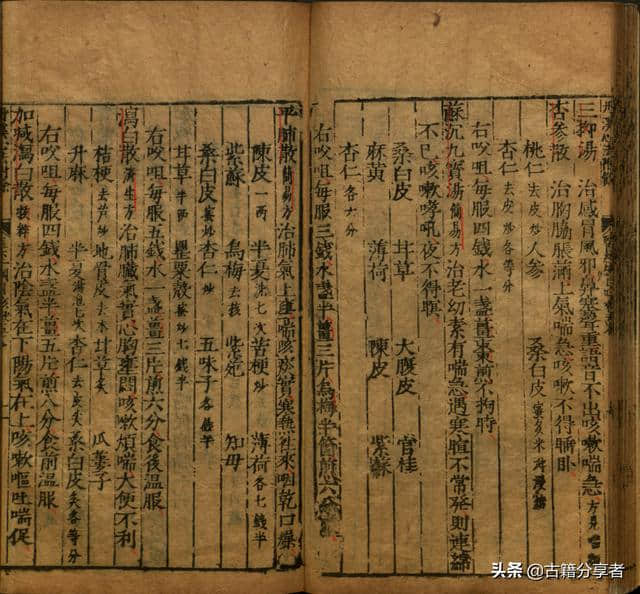 三拗湯 治感冒風邪鼻塞聲重語音不出咳嗽喘急 方見
杏參散 治胸脇脹滿上氣喘急咳嗽不得睡臥
桃仁 去皮炒 人參 桑白皮 米
杏仁 去皮炒
右㕮咀每服四錢水一盞薑棗煎不拘時
蘇沉九寶湯 簡易方 治老幼素有喘急遇寒暄不常發則連綿
不已咳嗽哮吼夜不得寢
桑白皮 甘草 大腹皮 官桂
麻黃 薄荷 陳皮 紫蘇
杏仁 各六分
右㕮咀每服三錢水盞半薑三片烏梅半箇煎六分
平肺散 簡易方 治肺氣上壅喘嗽痰實寒熱往來咽乾口燥
陳皮 一兩 半夏 洗七次 苦梗 炒 薄荷 各七錢半
紫蘇 烏梅 去核 紫菀 知母
桑白皮 蜜炒 杏仁 炒 五味子 各錢半
甘草 半兩 罌粟殼 七錢半
右㕮咀每服五錢水一盞薑三片煎六分食後溫服
瀉白散 濟生方 治肺臟氣實心胸壅悶咳嗽煩喘大便不利
桔梗 去芦炒 地骨皮 去木 甘草 炙 瓜蔞子
升麻 半夏 杏仁 去皮尖 桑白皮 炙各等分
右㕮咀每服四錢水盞半薑五片煎八分食前溫服
加減瀉白散 治陰氣在下陽氣在上咳嗽嘔吐喘促
头条 @古籍分享者